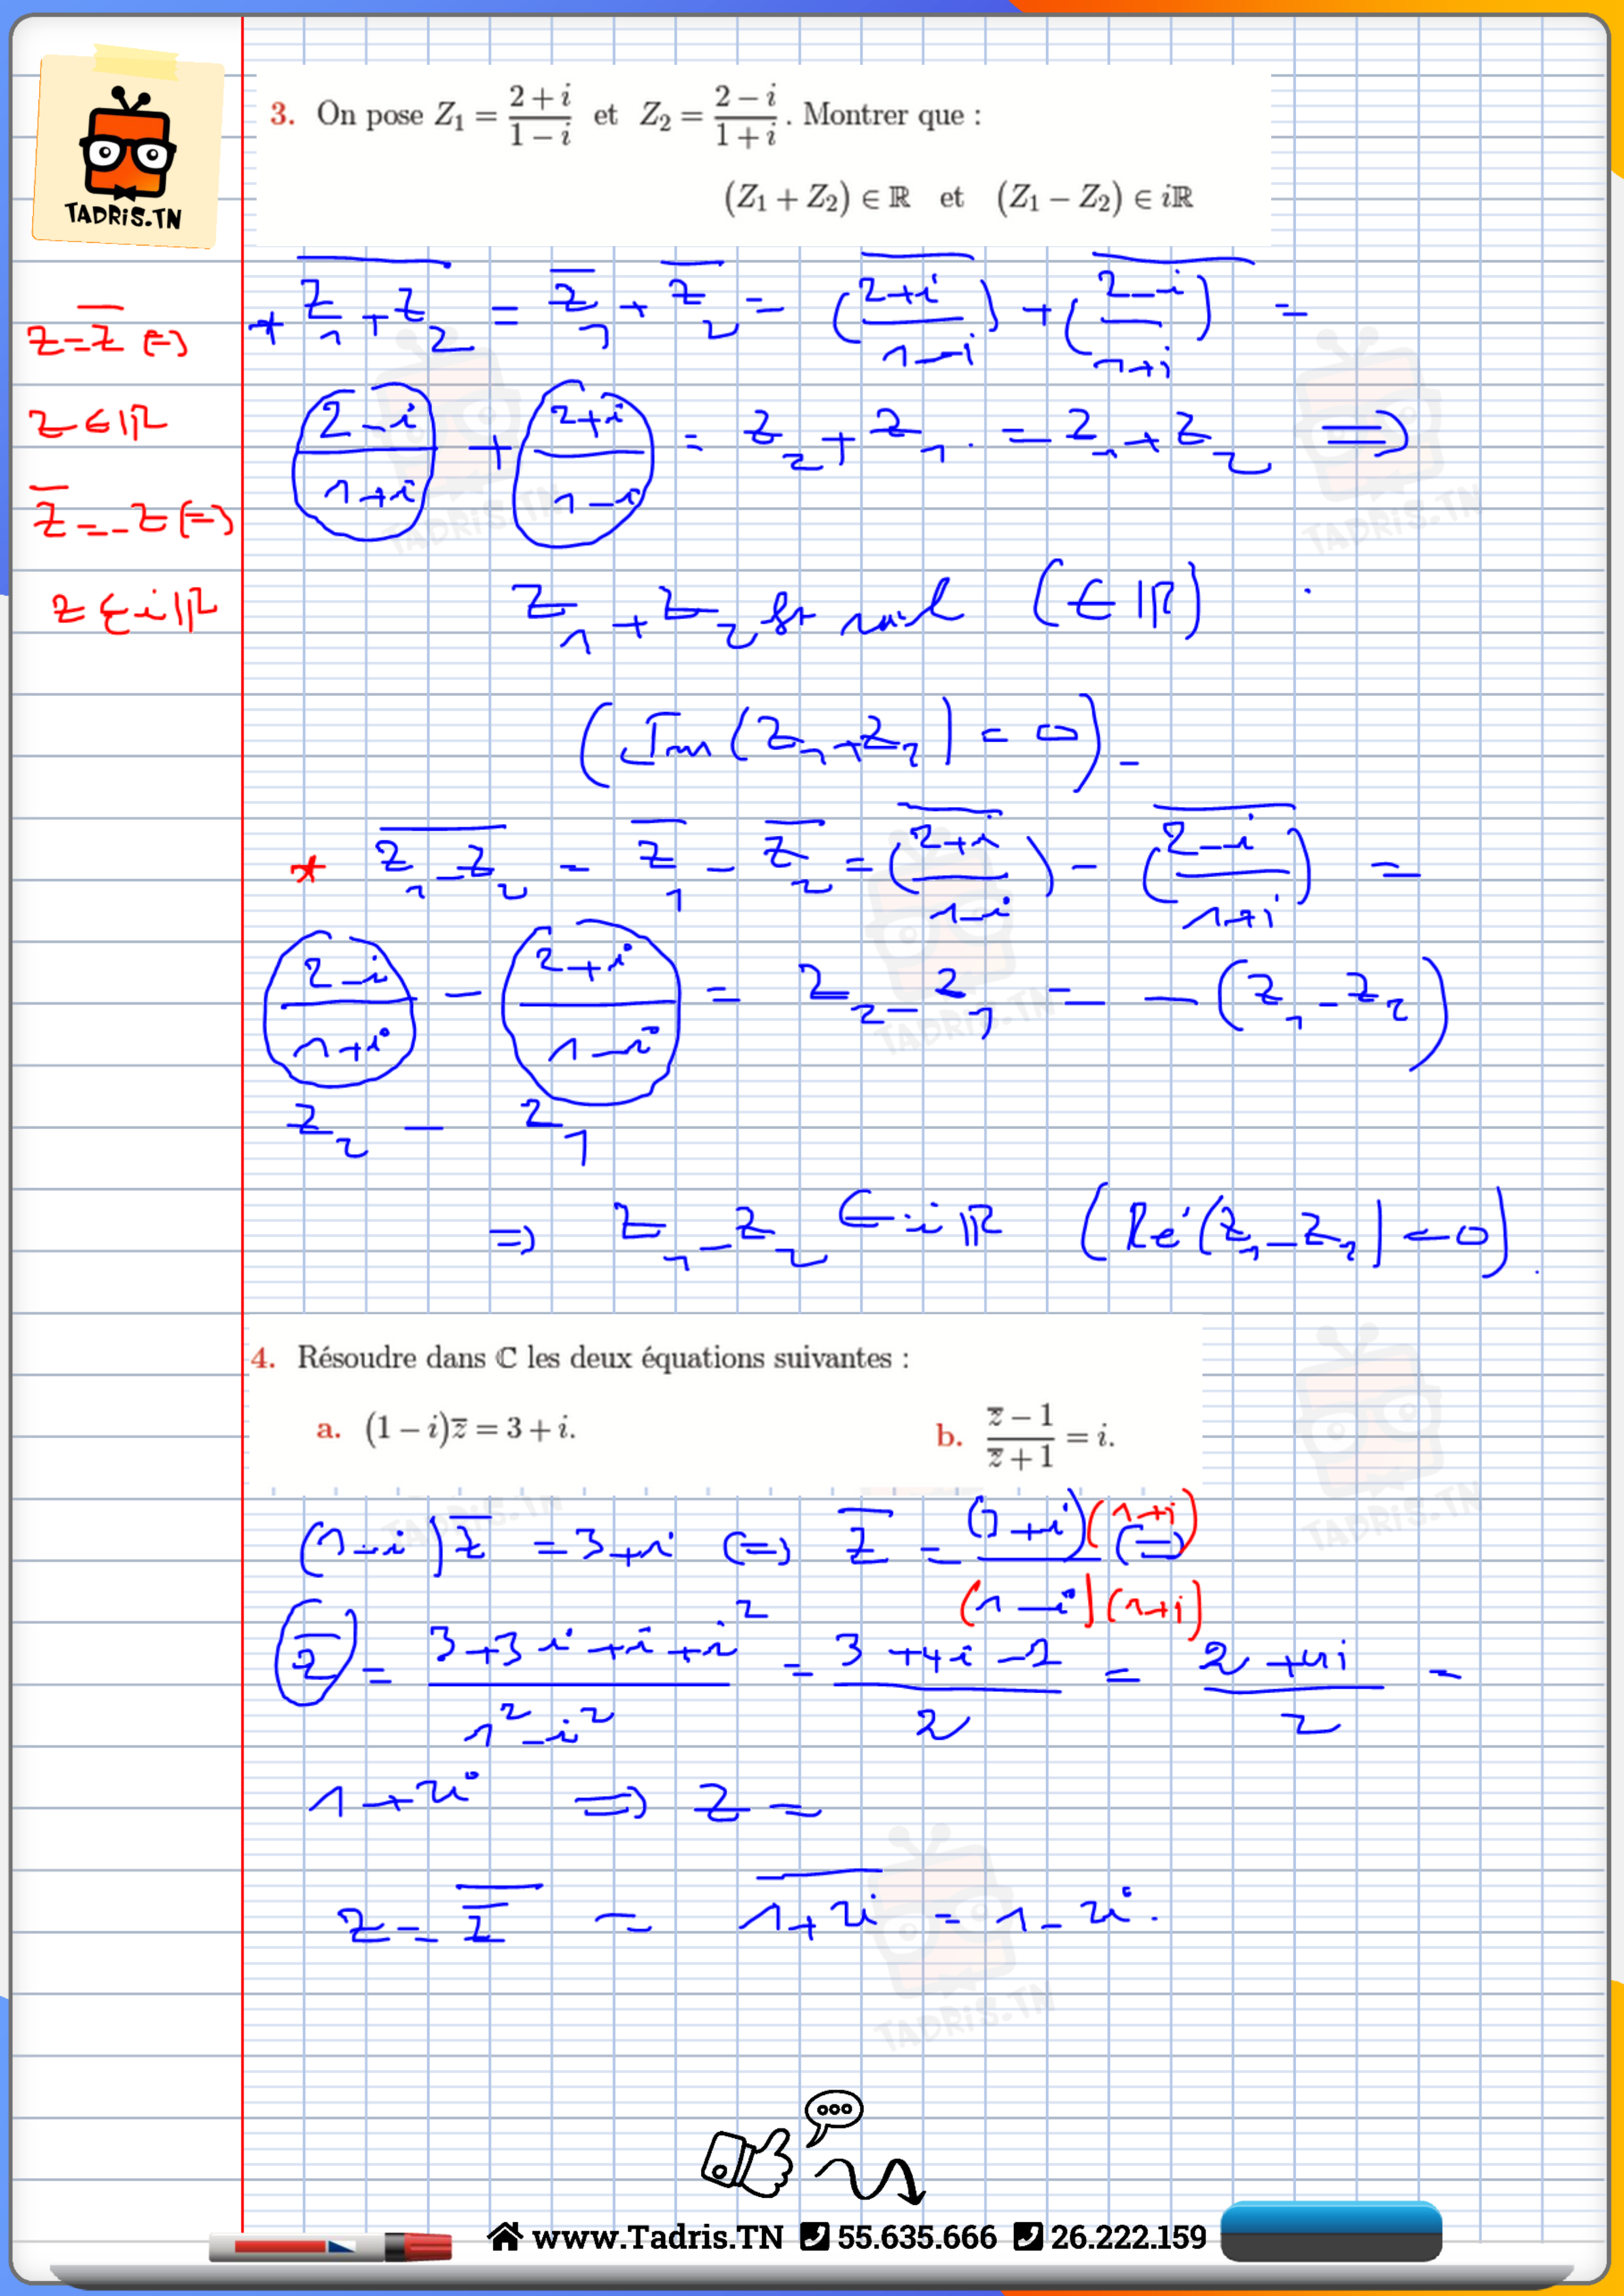 TADRiS.TN
3. On pose Z₁ = (2 + i)/(1 − i) et Z₂ = (2 − i)/(1 + i). Montrer que :
(Z₁ + Z₂) ∈ ℝ et (Z₁ − Z₂) ∈ iℝ
z = z̅ (=)
z ∈ iℝ
z̅ = -z (=)
z ∈ iℝ
* \overline{z₁ + z₂} = z̅₁ + z̅₂ = \overline{((2+i)/(1-i))} + \overline{((2-i)/(1+i))} =
(2-i)/(1+i) + (2+i)/(1-i) = z₂ + z₁ . = z₁ + z₂ =>
z₁ + z₂ est réel (∈ ℝ)
(Im(z₁ + z₂) = 0).
* \overline{z₁ - z₂} = z̅₁ - z̅₂ = \overline{((2+i)/(1-i))} - \overline{((2-i)/(1+i))} =
(2-i)/(1+i) - (2+i)/(1-i) = z₂ - z₁ = -(z₁ - z₂)
z₂ - z₁
=> z₁ - z₂ ∈ iℝ (Ré(z₁ - z₂) = 0).
4. Résoudre dans ℂ les deux équations suivantes :
a. (1 − i)z̅ = 3 + i.
b. (z̅ − 1)/(z̅ + 1) = i.
(1-i) z̅ = 3+i (=) z̅ = (3+i)(1+i)/(1-i)(1+i) (=)
z̅ = (3+3i+i+i²)/(1²-i²) = (3+4i-1)/2 = (2+4i)/2 =
1+2i => z =
z = \overline{z̅} = \overline{1+2i} = 1-2i.
www.Tadris.TN 55.635.666 26.222.159